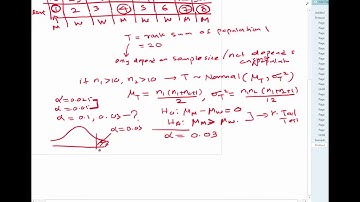 Sent ① 2 3 ④ 5 6 ⑦ ⑧
M W W M W W M M
T = rank sum of population 1
= 20
only depend on sample size / not depend s on
if n₁>10, n₂>10 → T ~ Normal (μ_T, σ_T²)
μ_T = n₁(n₁+n₂+1)/2, σ_T² = n₁n₂(n₁+n₂+1)/12
α = 0.025
α = 0.05
α = 0.1, 0.03 → ?
H₀: M_M − M_W = 0
H_A: M_M > M_W
→ r. Tail Test
α = 0.03
α = 0.03